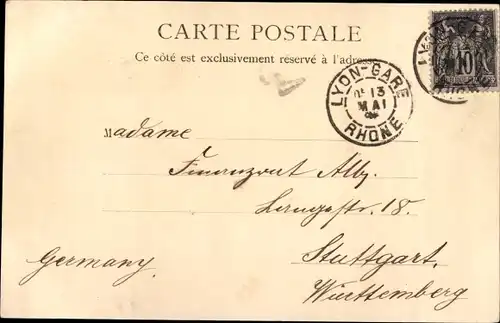 CARTE POSTALE
Ce côté est exclusivement réservé à l'adresse
LYON-GARE
13
MAI
RHÔNE
10
Madame
Finanzrat Alb.
Langestr. 18.
Stuttgart.
Germany.
Württemberg